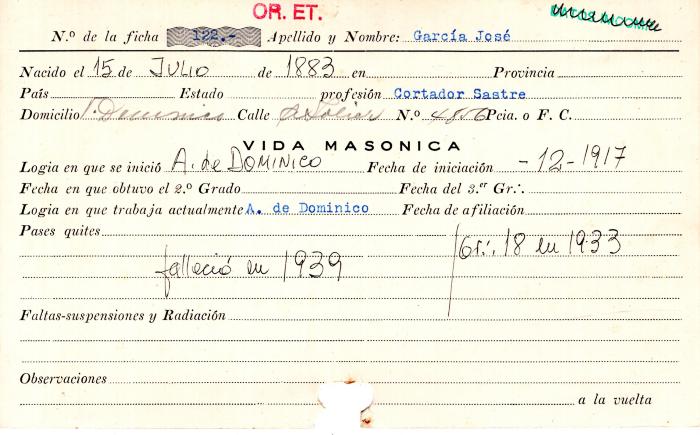 OR. ET.
N.º de la ficha 122.- Apellido y Nombre: García José
Nacido el 15 de JULIO de 1883 en Provincia
País Estado profesión Cortador Sastre
Domicilio Calle N.º 4856 Pcia. o F. C.
VIDA MASONICA
Logia en que se inició A. de DOMINICO Fecha de iniciación -12-1917
Fecha en que obtuvo el 2.º Grado Fecha del 3.er Gr∴
Logia en que trabaja actualmente A. de Dominico Fecha de afiliación
Pases quites
Gr∴ 18 en 1933
falleció en 1939
Faltas-suspensiones y Radiación
Observaciones
a la vuelta